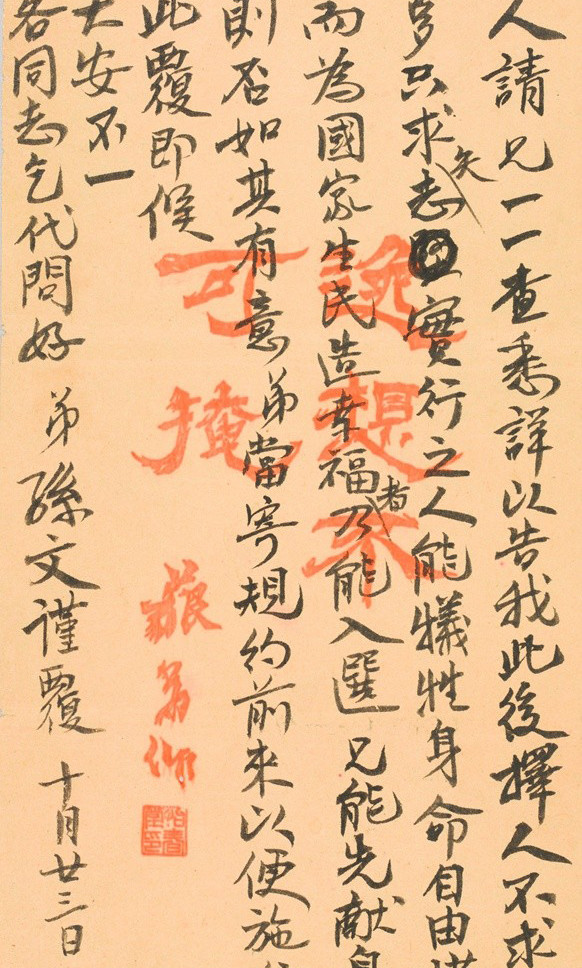 人請兄一一查悉詳以告我此後擇人不求
多只求矢志實行之人能犧牲身命自由
而為國家生民造幸福者乃能入選兄能先獻
則否如其有意弟當寄規約前來以便施
此覆即候
大安不一
各同志乞代問好 弟孫文謹覆 十月廿三日
逸想不
可掩